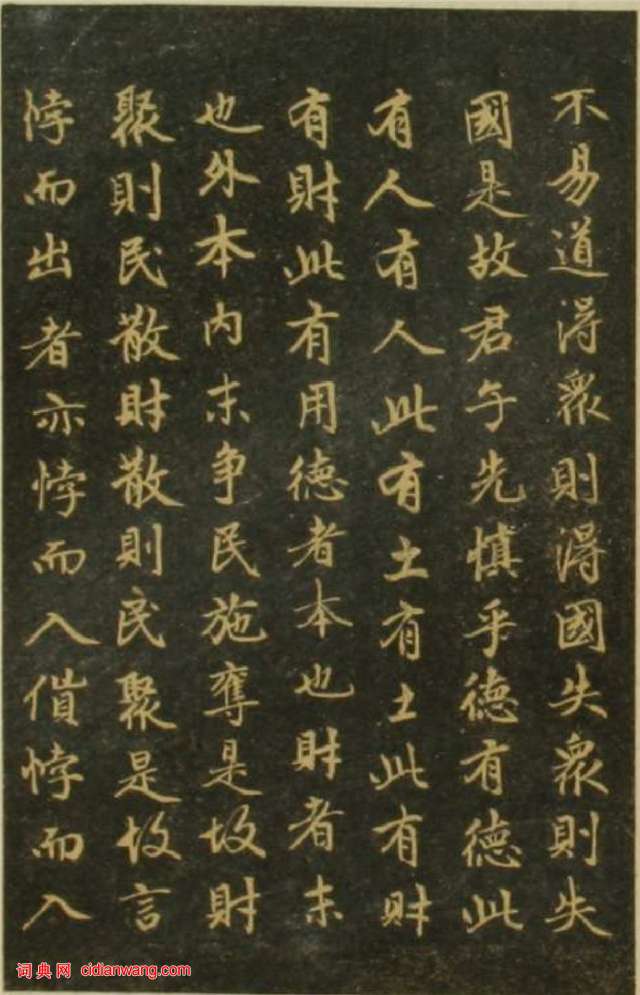 不易道得衆則得國失衆則失
國是故君子先慎乎德有德此
有人有人此有土有土此有財
有財此有用德者本也財者末
也外本内末争民施奪是故財
聚則民散財散則民聚是故言
悖而出者亦悖而入偩悖而入
词典网 cidianwang.com